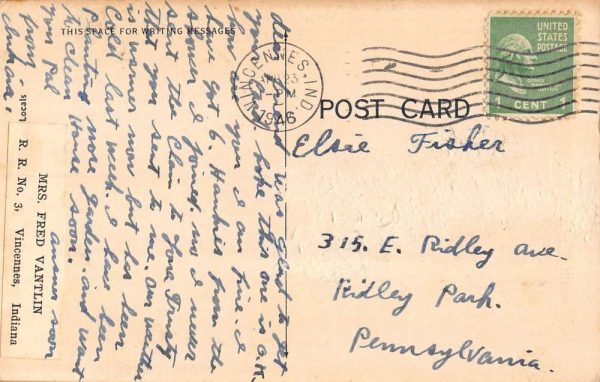 THIS SPACE FOR WRITING MESSAGES
POST CARD
UNITED
STATES
POSTAGE
1 CENT 1
VINCENNES, IND.
23
PM
1946
Elsie Fisher
315. E. Ridley ave.
Ridley Park.
Pennsylvania.
dear Friend was glad to get
your card hope this one is O.K.
how are you I am fine. I
got 6. Hankies from the
shower I joined. no I never
sent the Chain to Trusty
that you sent to me. our weather
is warmer now but has been
Cold last week. I have been
planting more garden and want
to clean House soon.
answer soon
your Pal
from
Indiana.
MRS. FRED VANTLIN
R. R. No. 3, Vincennes, Indiana